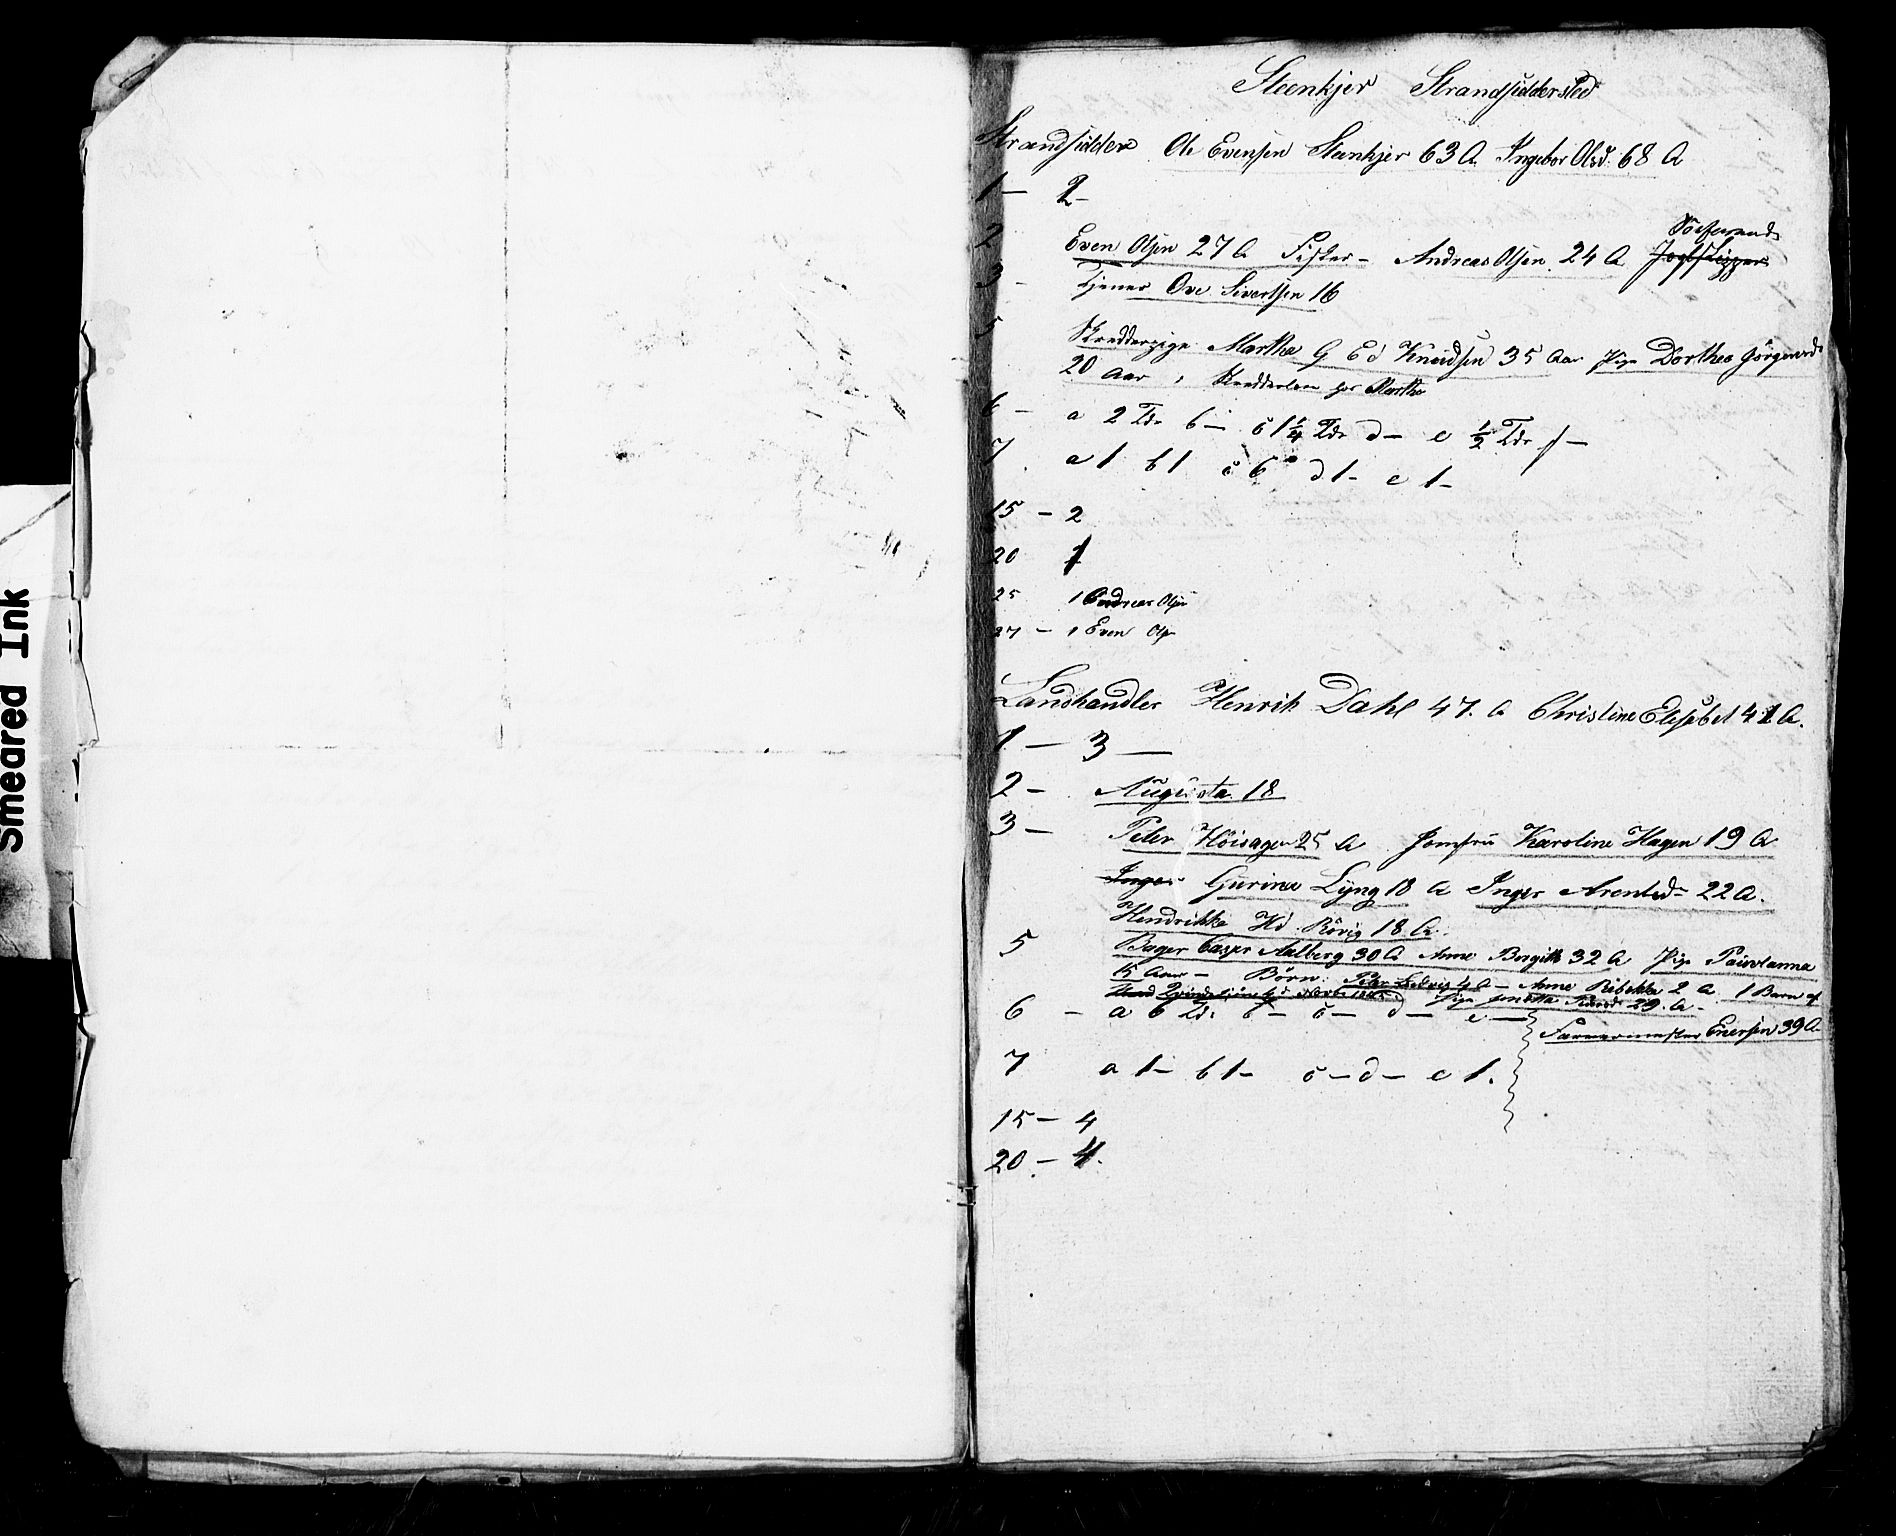 Smeared Ink
Steenkjer Strandsiddersted
Strandsidder Ole Evensen Steenkjer 63 A Ingebor Olsd: 68 A
1 — 2 –
Söefarende
2 Even Olsen 27 A Fisker – Andreas Olsen 24 A Jagtskipper
3 – Tjener Ove Sivertsen 16
5 Skredderpige Marthe G Ed Knudsen 35 Aar Pige Dorthea Jörgensd:
20 Aar, Skredderlære hos Marthe
6 – a 2 Tdr b – c 1 1/4 Tdr d – e 1/2 Tdr f –
7 a 1 b 1 c 6 d 1 – e 1 –
15 – 2
20 1
25 1 Andreas Olsen
27 – 1 Even Ols
Landhandler Henrik Dahl 47. A Christine Elisabet 41 A.
1 — 3 —
2 – Augusta 18
3 – Peter Höisagen 25 A Jomfru Karoline Hagen 19 A
Inger Gurine Lyng 18 A Inger Arentsd– 22 A.
Hendrikke Hd. Rövig 18 A.
5 Bager Casper Aalberg 30 A Anne Birgitte 32 A Pige
15 Aar – Börn: Peter Ludvig 4 A – Anne Rebekka 2 A 1 Barn af
Pige 29. A –
6 – a 6 Td: b – c – d – e —
Farvermester Enersen 39 A
7 a 1 – b 1 – c – d – e 1.
15 – 4
20 – 4.